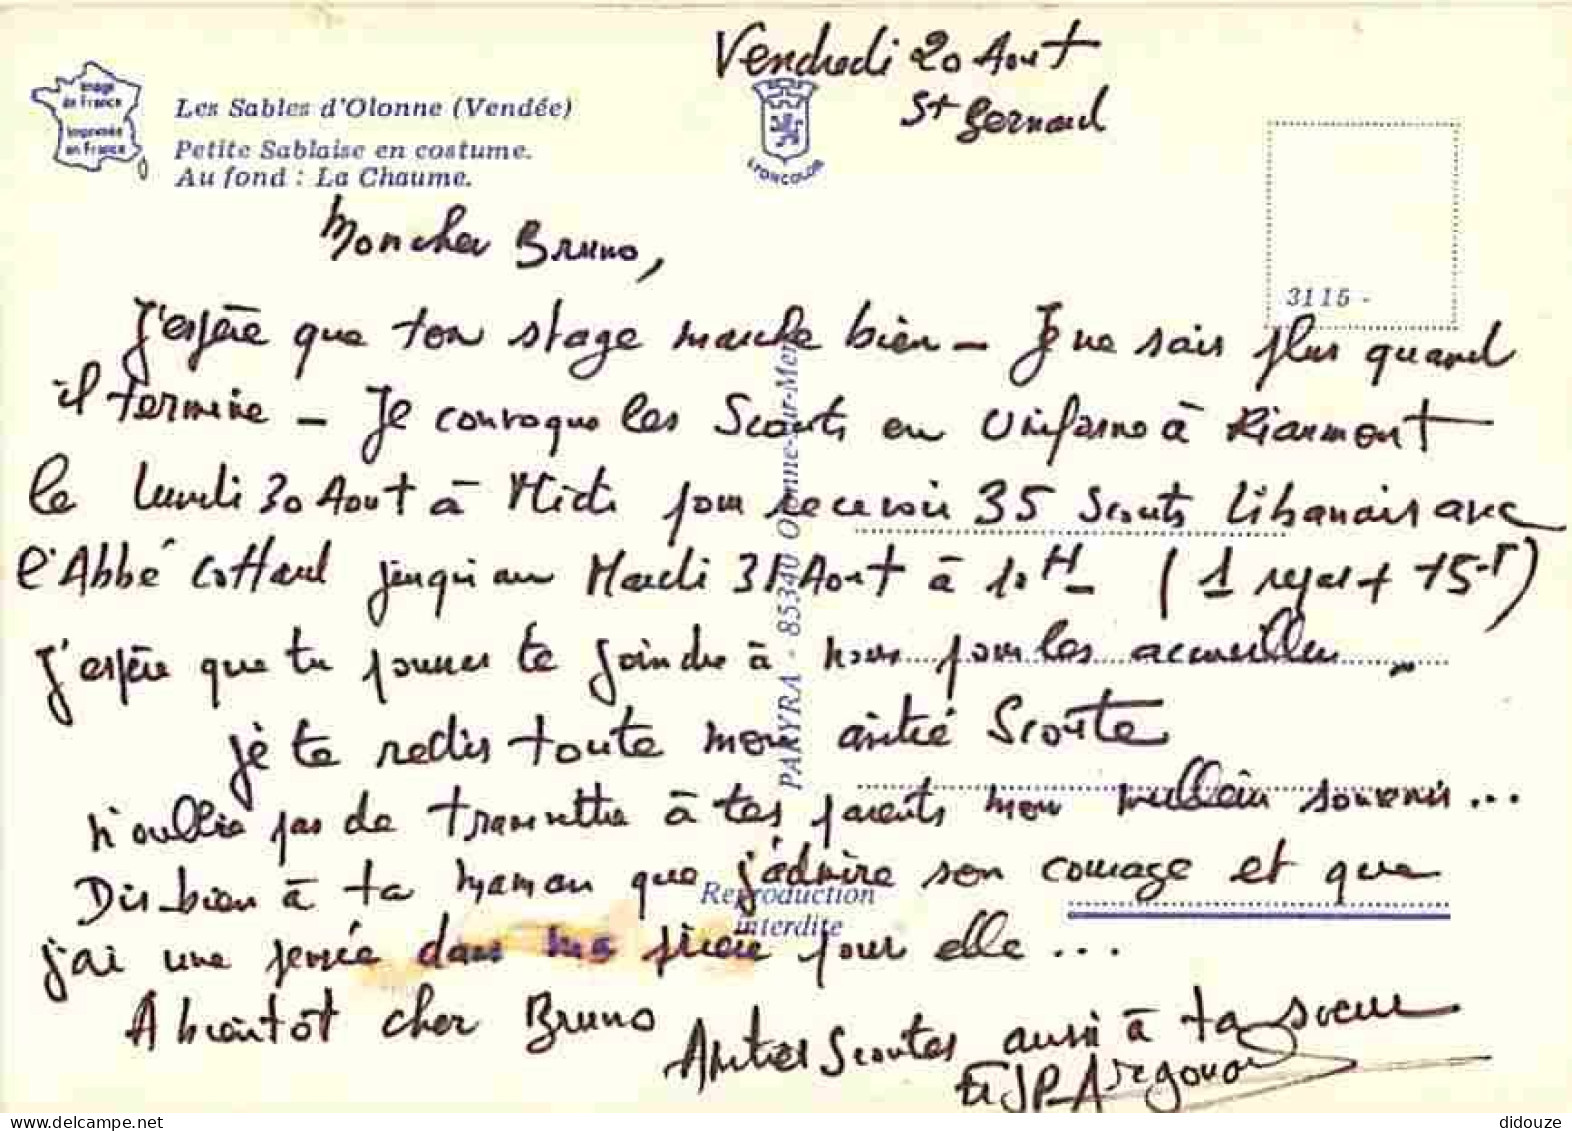 Vendredi 20 Aout
St Bernard
Image
de France
Imprimée
en France
Les Sables d'Olonne (Vendée)
Petite Sablaise en costume.
Au fond : La Chaume.
LYONCOLOR
3115 -
Mon cher Bruno,
J'espère que ton stage marche bien - Je ne sais plus quand
il termine - Je convoque les Scouts en Uniforme à Riaumont
le lundi 30 Aout à Midi pour recevoir 35 Scouts Libanais avec
l'Abbé Cottard jusqu'au Mardi 31 Aout à 10H - (1 repas +
J'espère que tu pourras te joindre à nous pour les accueillir ..
je te redis toute mon amitié Scoute
N'oublie pas de transmettre à tes parents mon meilleur souvenir ...
Dis bien à ta Maman que j'admire son courage et que
j'ai une pensée dans ma prière pour elle ...
A bientôt cher Bruno
Amitiés Scoutes aussi à ta soeur
JP Argouarc'h
PARYRA - 85340 Olonne-sur-Mer
Reproduction
interdite
didouze